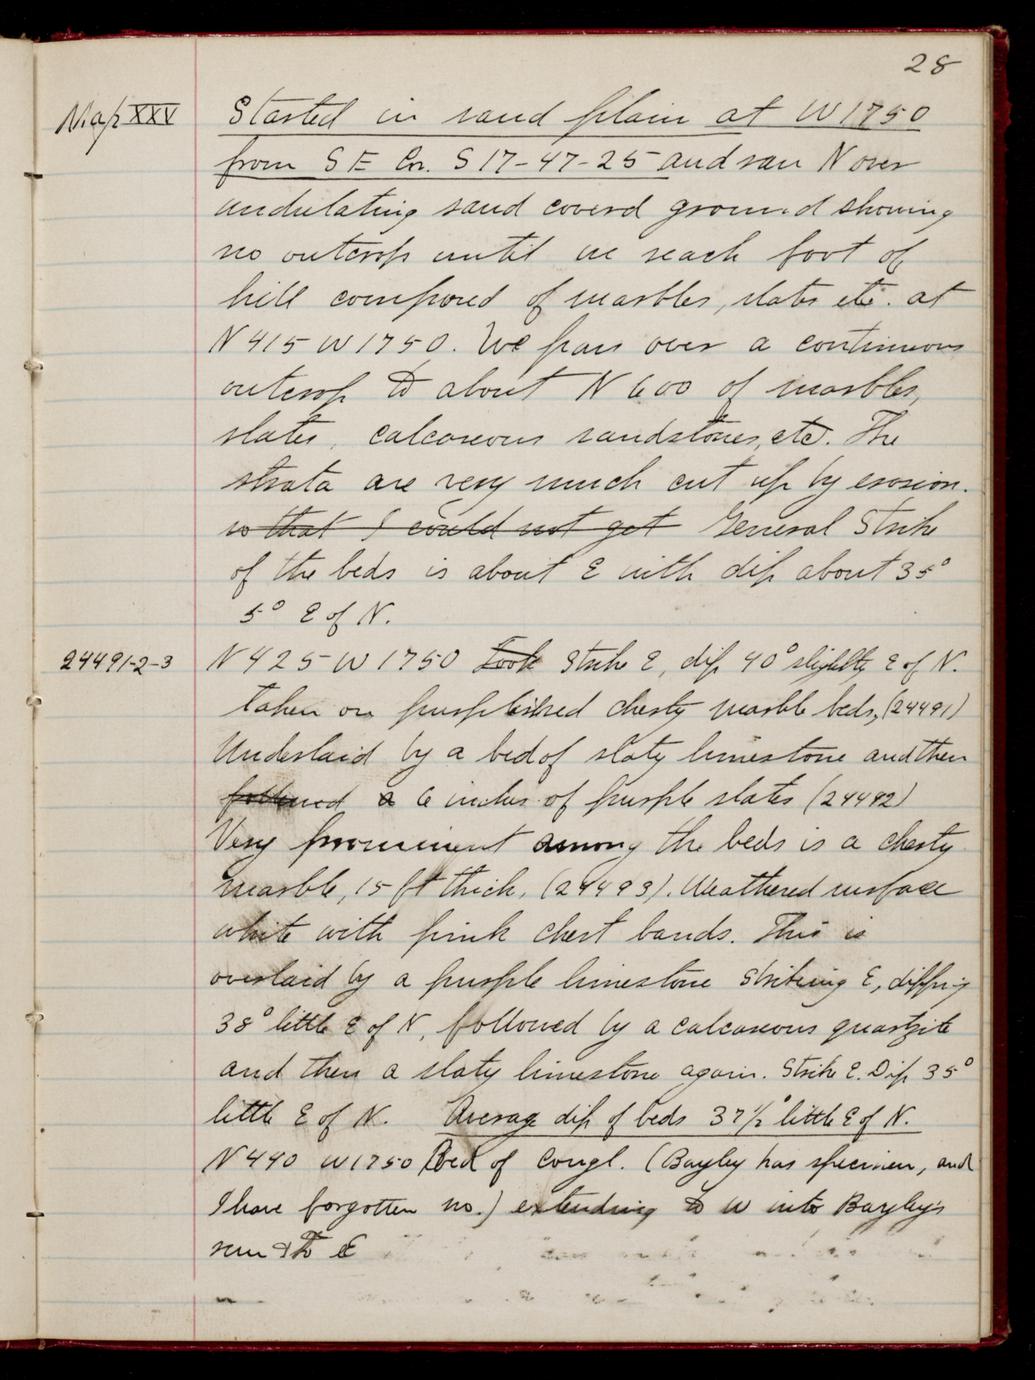 28
Map XXV
Started in sand plain at W 1750
from S E Cor. S 17-47-25 and ran N over
undulating sand coverd ground showing
no outcrop until we reach foot of
hill composed of marbles, slates etc. at
N 415 W 1750. We pass over a continuous
outcrop to about N 600 of marbles,
slates, calcareous sandstones, etc. The
strata are very much cut up by erosion.
so that I could not get General Strike
of the beds is about E with dip about 35°
5° E of N.
24491-2-3
N 425 W 1750 Took Strike E, dip 40° slightly E of N.
taken on purplish red cherty marble beds, (24491)
Underlaid by a bed of slaty limestone and then
followed a 6 inches of purple slates (24492)
Very prominent among the beds is a cherty
marble, 15 ft thick, (24493). Weathered surface
white with pink chert bands. This is
overlaid by a purple limestone striking E, dipping
38° little E of N, followed by a calcareous quartzite
and then a slaty limestone again. Strike E. Dip 35°
little E of N. Average dip of beds 37½° little E of N.
N 490 W 1750 Bed of Congl. (Bayley has specimen, and
I have forgotten no.) extending to W into Bayley's
run & to E